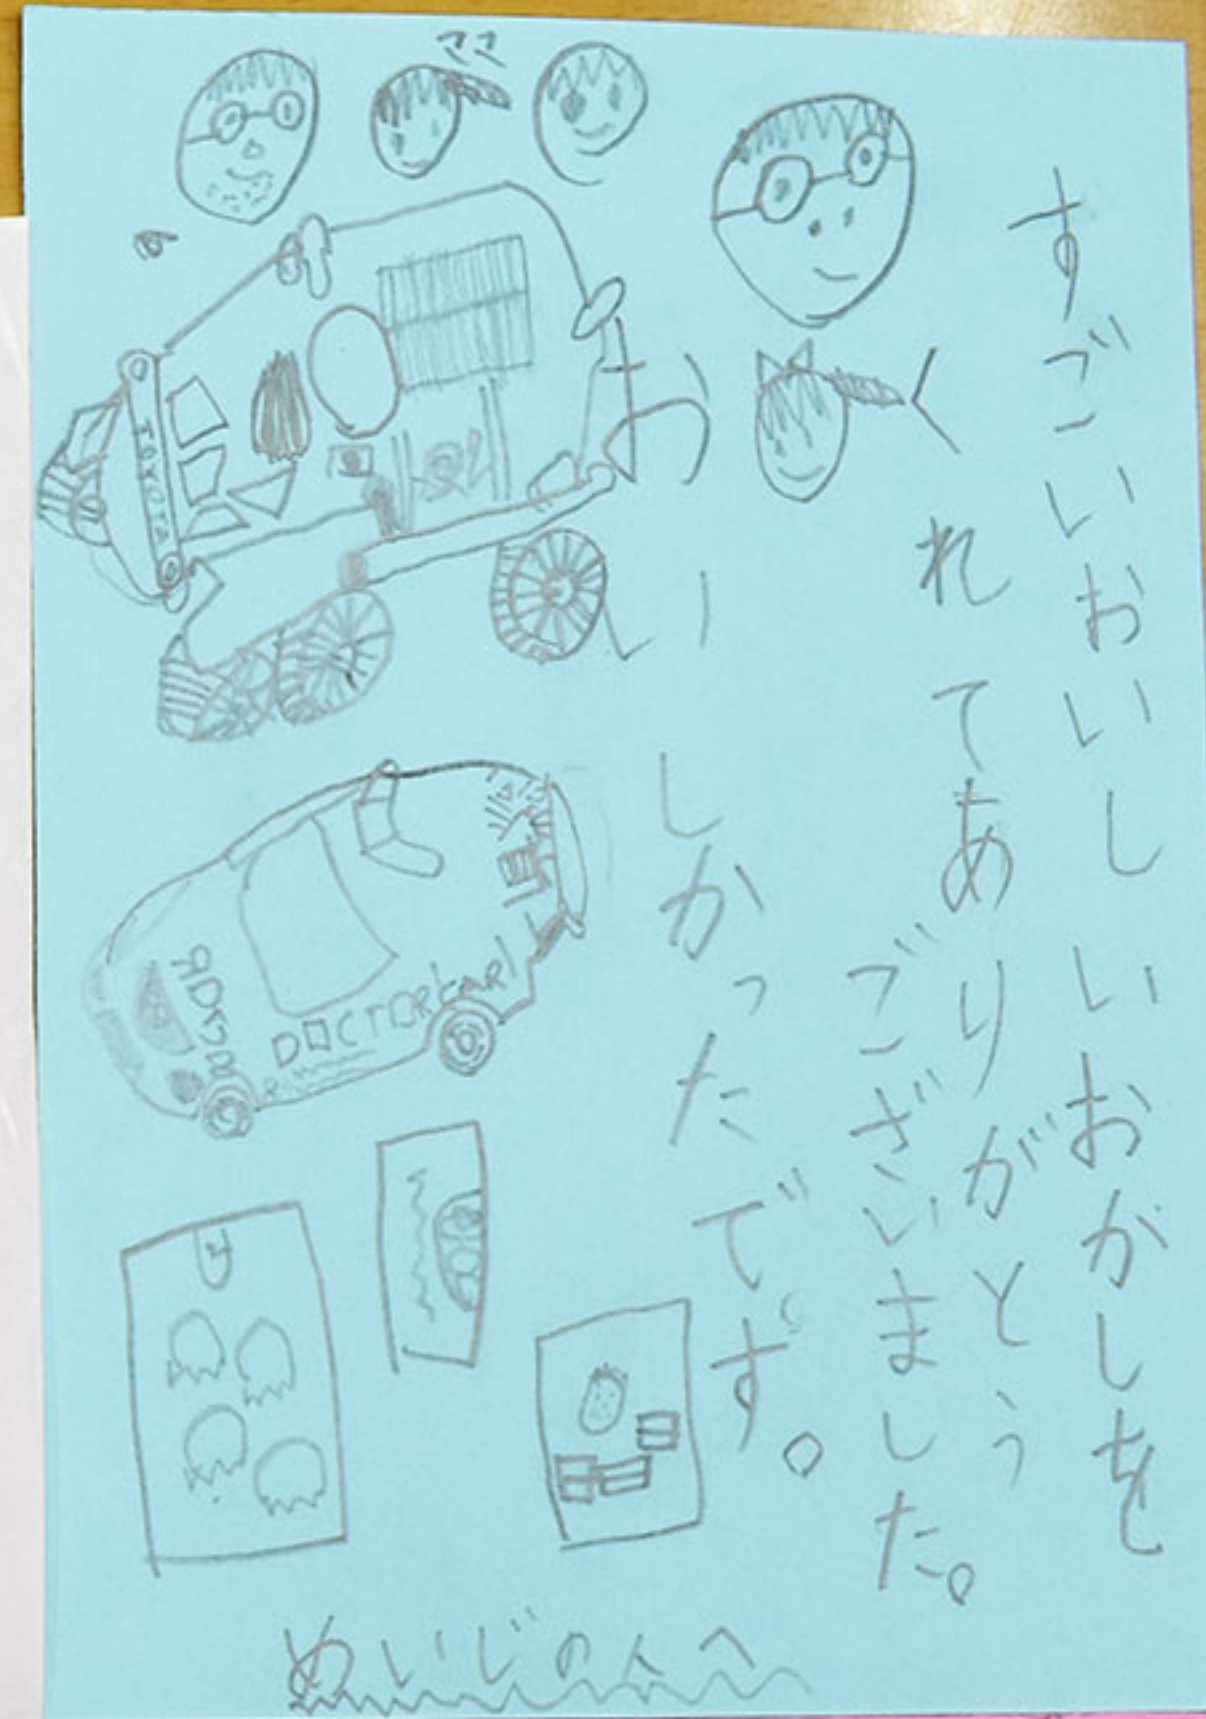 すごいおいしいおかしを
くれてありがとう
ございました。
おいしかったです。
TOYOTA
DOCTOR CAR
めいじの人へ